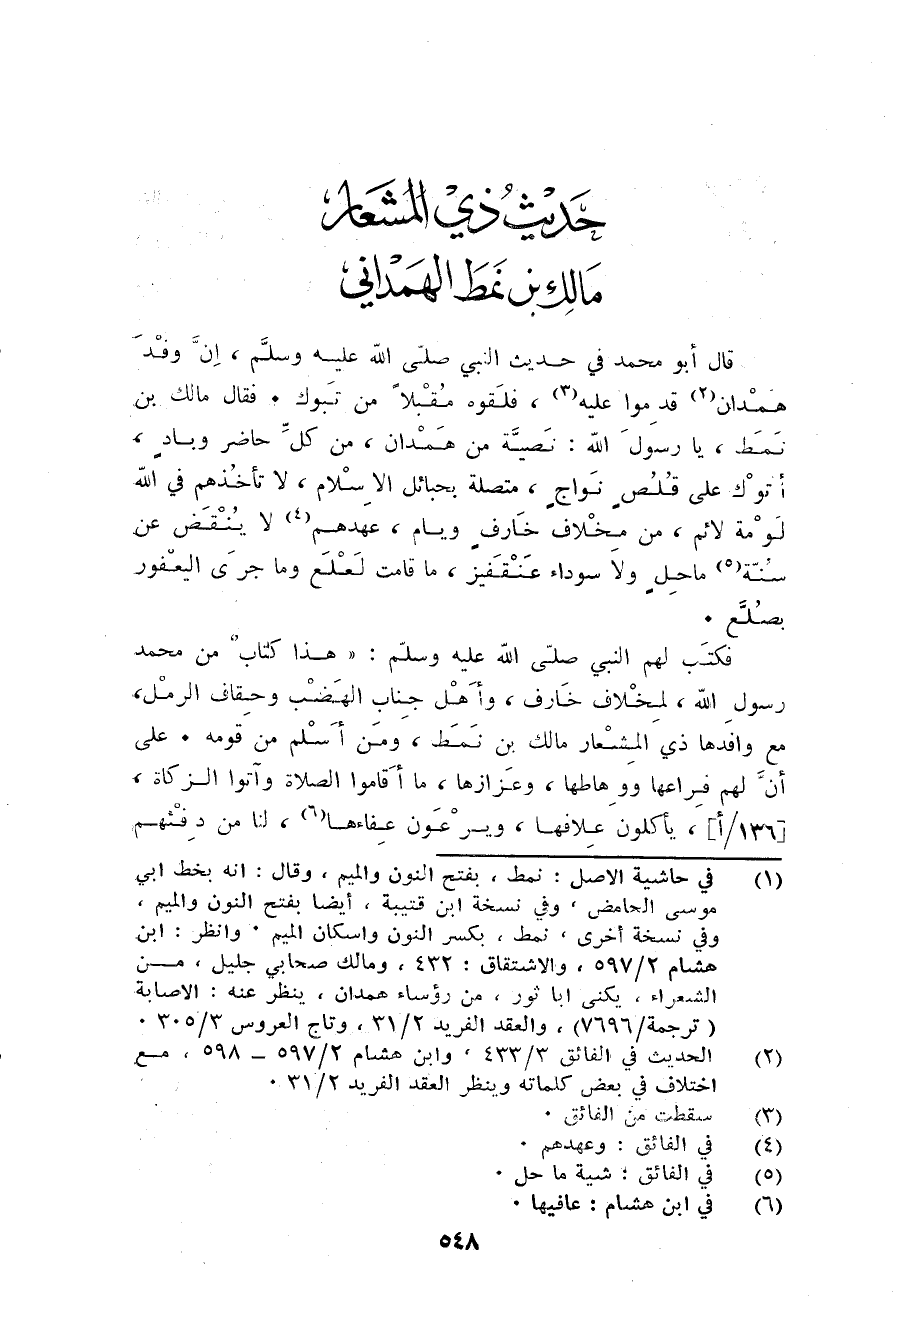 حَديثُ ذي المشعار
مَالِك بن نمَط الهَمَداني
قال أبو محمد في حـديث النبي صلّى الله عليـه وسلَّم ، إِنَّ وفْدَ
هَمْدان(٢) قدموا عليه(٣) ، فلَقوه مُقْبلاً من تَبوك • فقال مالك بن
نَمَط ، يا رسولَ الله : نَصِيَّة من هَمْدان ، من كلِّ حاضر وبادٍ ،
أتوْك على قُلُصٍ نَواجٍ ، متصلة بحبائل الاسلام ، لا تأخُذهم في الله
لَوْمة لائم ، من مِخْلاف خَارفٍ ويـام ، عهدهـم(٤) لا يُنْقَض عن
سُنّة(٥) ماحِلٍ ولا سوداء عَنْقَفيز ، ما قامت لَعْلَع وما جرَى اليعْفور
بصُلَّع •
فكتَب لهم النبي صلّى الله عليه وسلّم : « هـذا كتابٌ من محمد
رسول الله ، لمِخْلاف خَارف ، وأهْل جِناب الهَضْب وحِقاف الرمْل،
مع وافدها ذي المِشْعار مالك بن نَمَـط ، ومَن أسْلم من قومه • على
أنَّ لهم فِراعها ووِهاطها ، وعَزازها ، ما أقاموا الصلاة وآتوا الـزكاة ،
[١٣٦/أ] ، يأكلون عِلافهـا ، ويـرْعَون عفاءهـا(٦) ، لنا من دِفْئهـم
(١) في حاشية الاصل : نمط ، بفتح النون والميم ، وقال : انه بخط ابي
موسى الحامض ، وفي نسخة ابن قتيبة ، أيضا بفتح النون والميم ،
وفي نسخة أخرى ، نمط ، بكسر النون واسكان الميم • وانظر : ابن
هشام ٥٩٧/٢ ، والاشتقاق : ٤٣٢ ، ومالك صحابي جليل ، مـــن
الشعراء ، يكنى ابا ثور ، من رؤساء همدان ، ينظر عنه : الاصابة
( ترجمة/٧٦٩٦) ، والعقد الفريد ٣١/٢ ، وتاج العروس ٣٠٥/٣ •
(٢) الحديث في الفائق ٤٣٣/٣ ، وابن هشام ٥٩٧/٢ ــ ٥٩٨ ، مــع
اختلاف في بعض كلماته وينظر العقد الفريد ٣١/٢ •
(٣) سقطت من الفائق •
(٤) في الفائق : وعهدهم •
(٥) في الفائق : شية ما حل •
(٦) في ابن هشام : عافيها •
٥٤٨